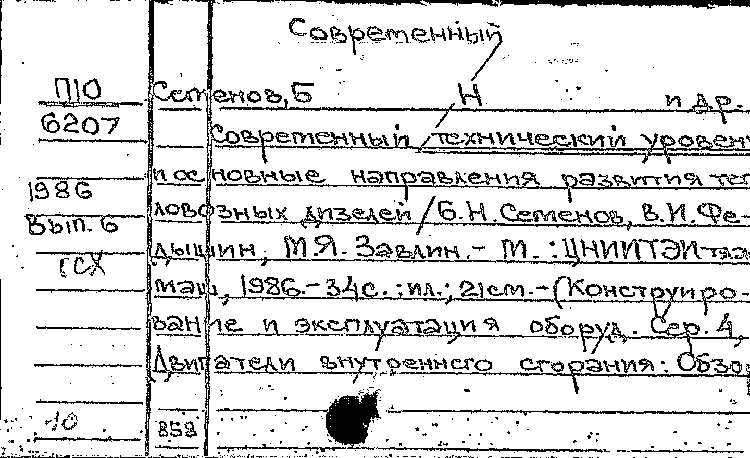 Современный
П10 Семенов, Б Н и др.
6207 Современный технический уровень
и основные направления развития теп-
1986 ловозных дизелей / Б.Н. Семенов, В.И. Фе-
Вып. 6 дышин, М.Я. Завлин. - М. : ЦНИИТЭИтяж-
маш, 1986. - 34с. : ил.; 21см. - (Конструиро-
вание и эксплуатация оборуд. Сер. 4,
Двигатели внутреннего сгорания: Обзор
10 858